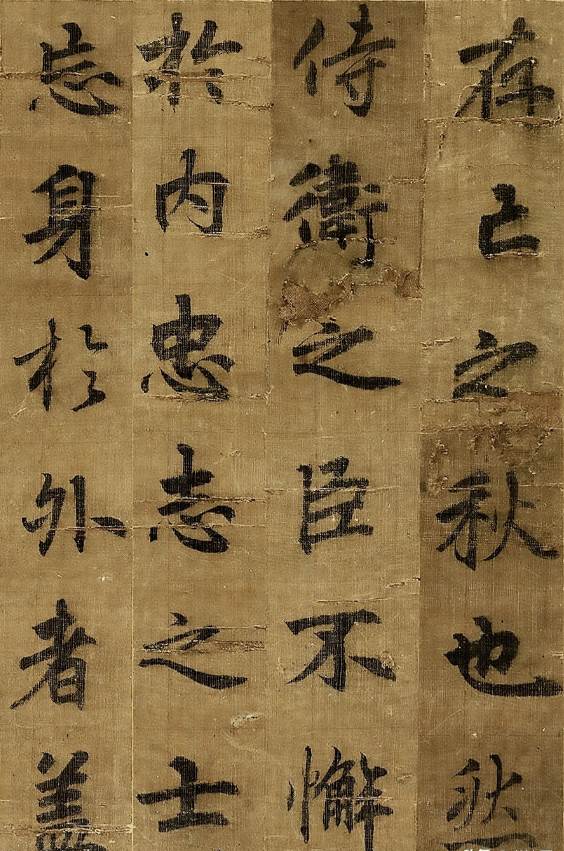 存亡之秋也然
侍衛之臣不懈
於内忠志之士
忘身於外者蓋